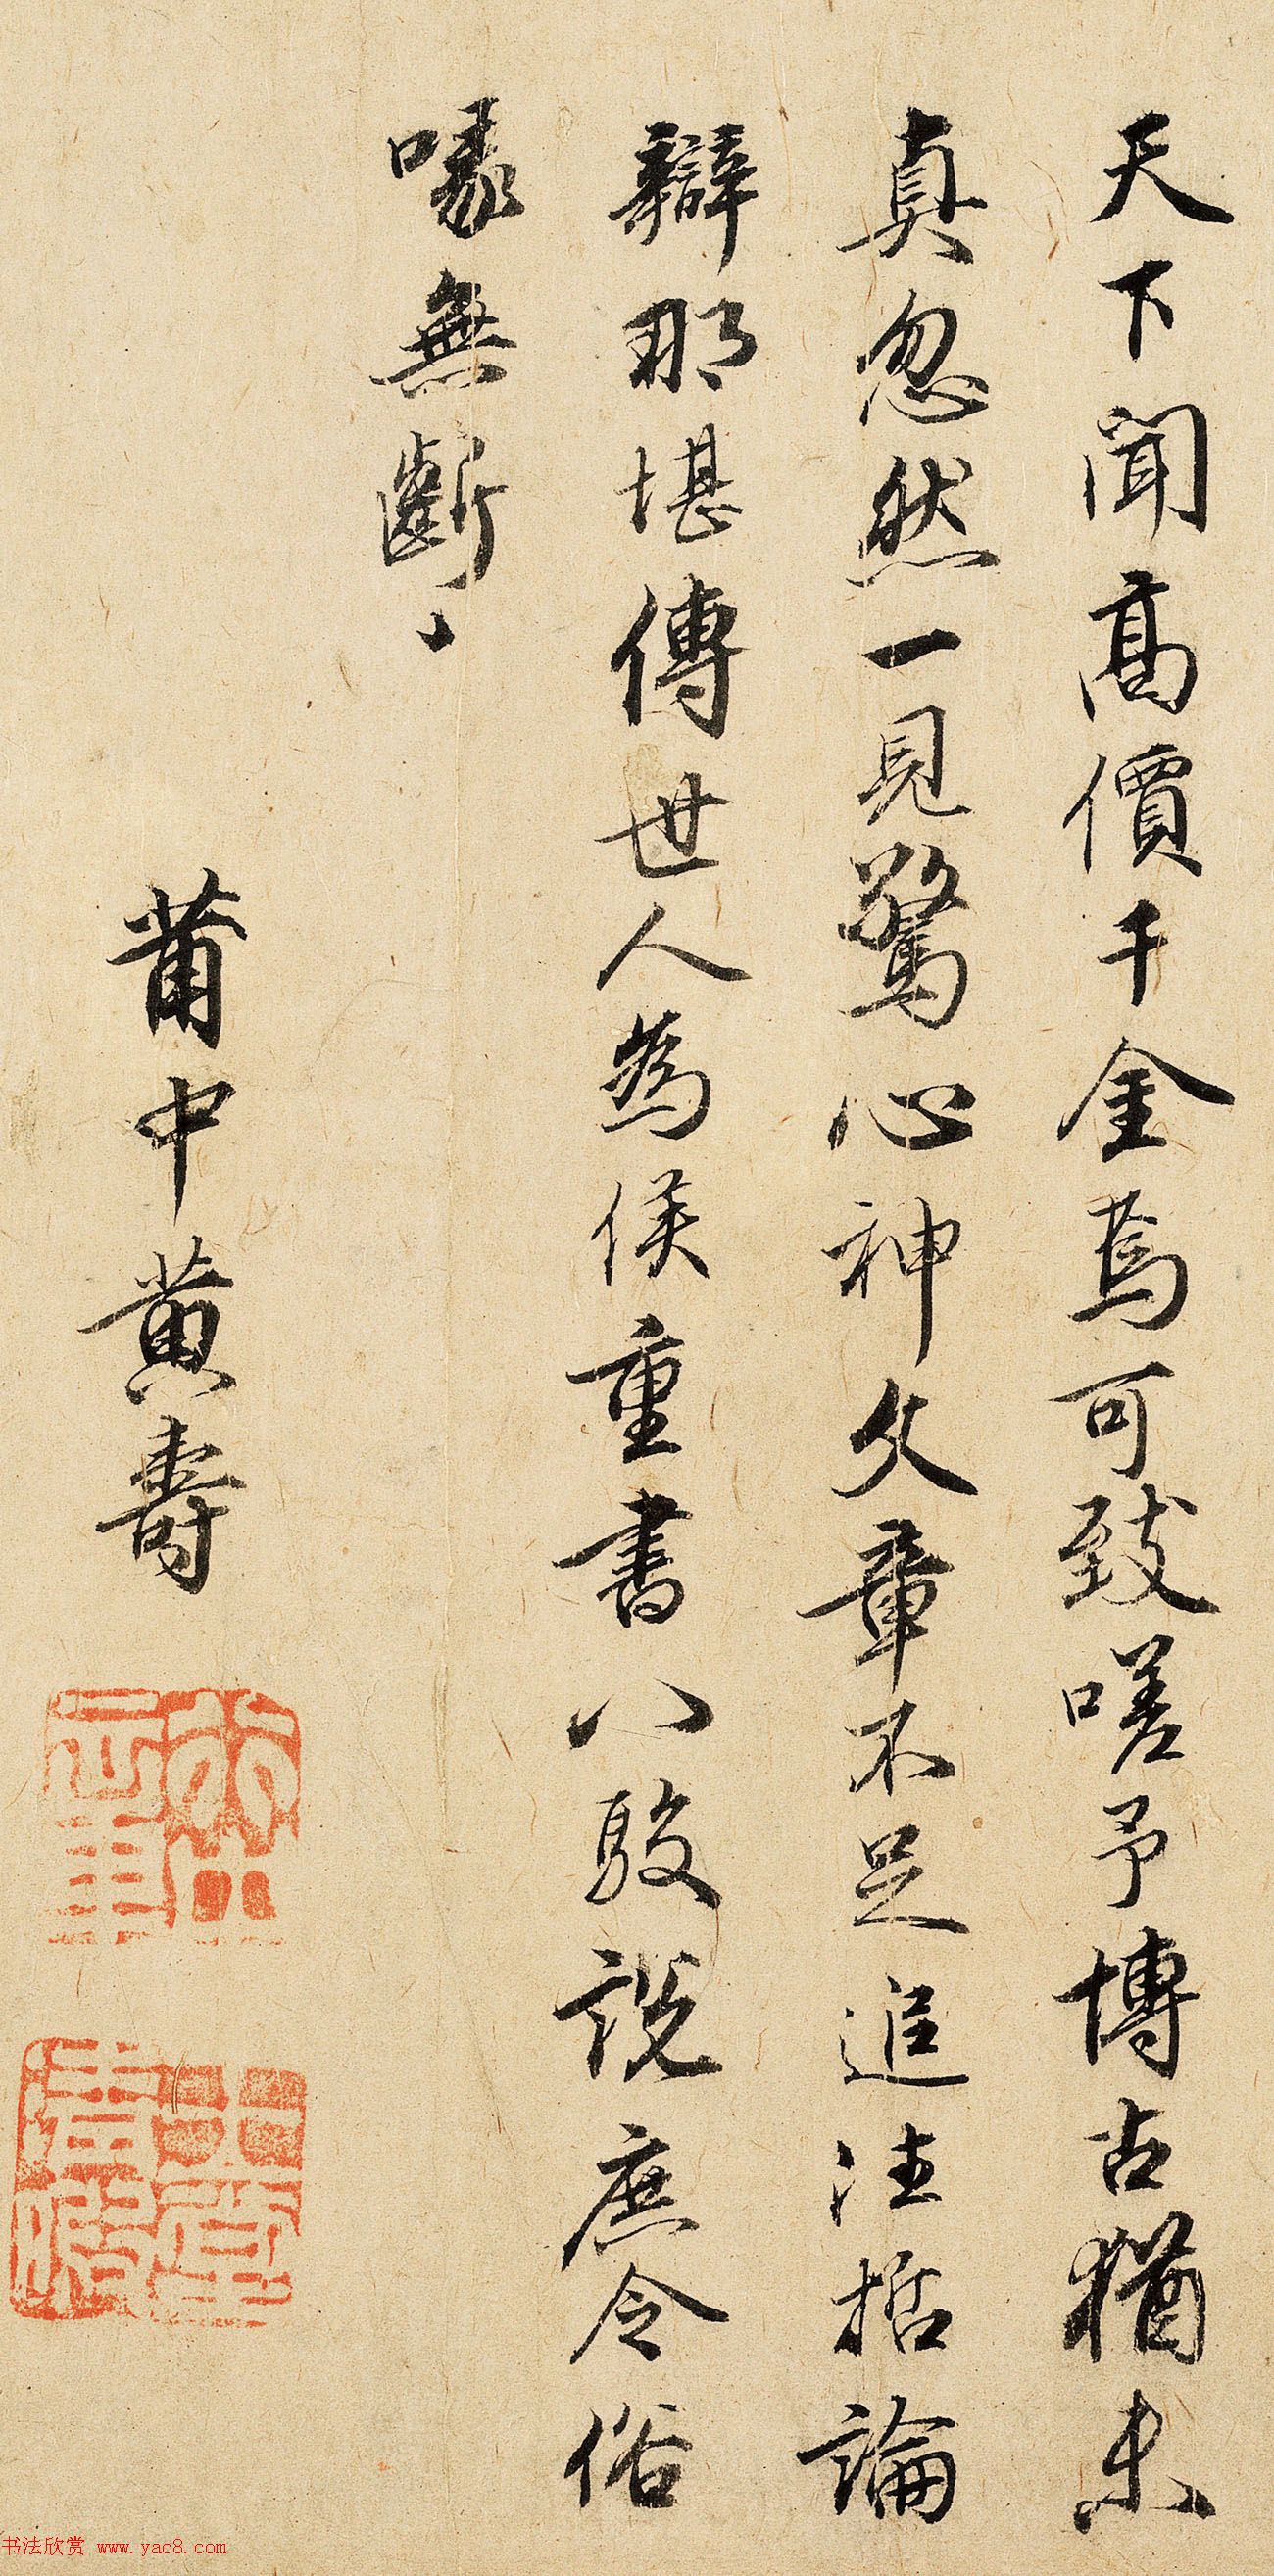 天下聞高價千金焉可致嗟予博古猶未
真忽然一見驚心神文章不足追注哲論
辯那堪傳世人為侯重書八駿說庶令俗
喙無齗〻
莆中黄壽
书法欣赏 www.yac8.com